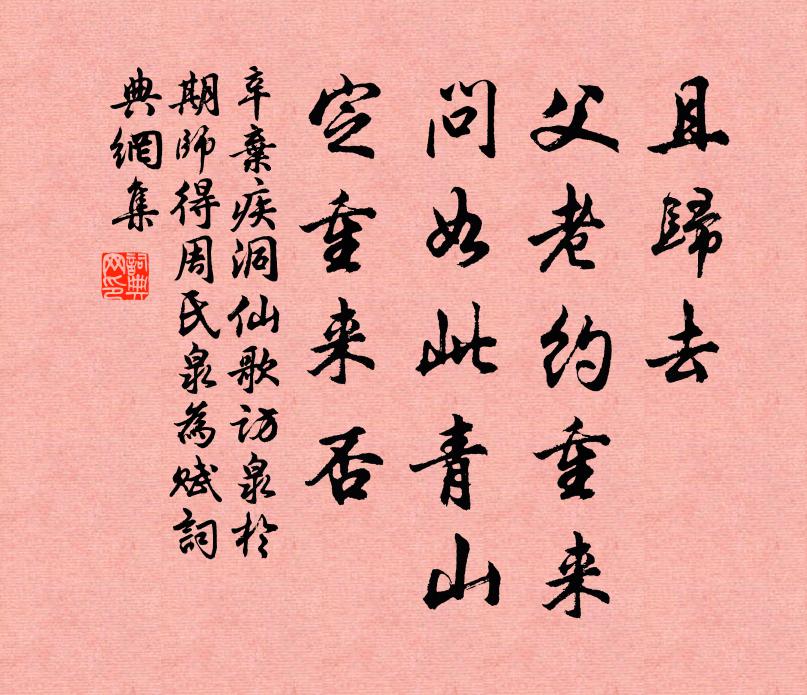 且歸去
父老約重来
問如此青山
定重来否
辛棄疾洞仙歌訪泉於
期師得周氏泉為賦詞
典網集
詞典网印